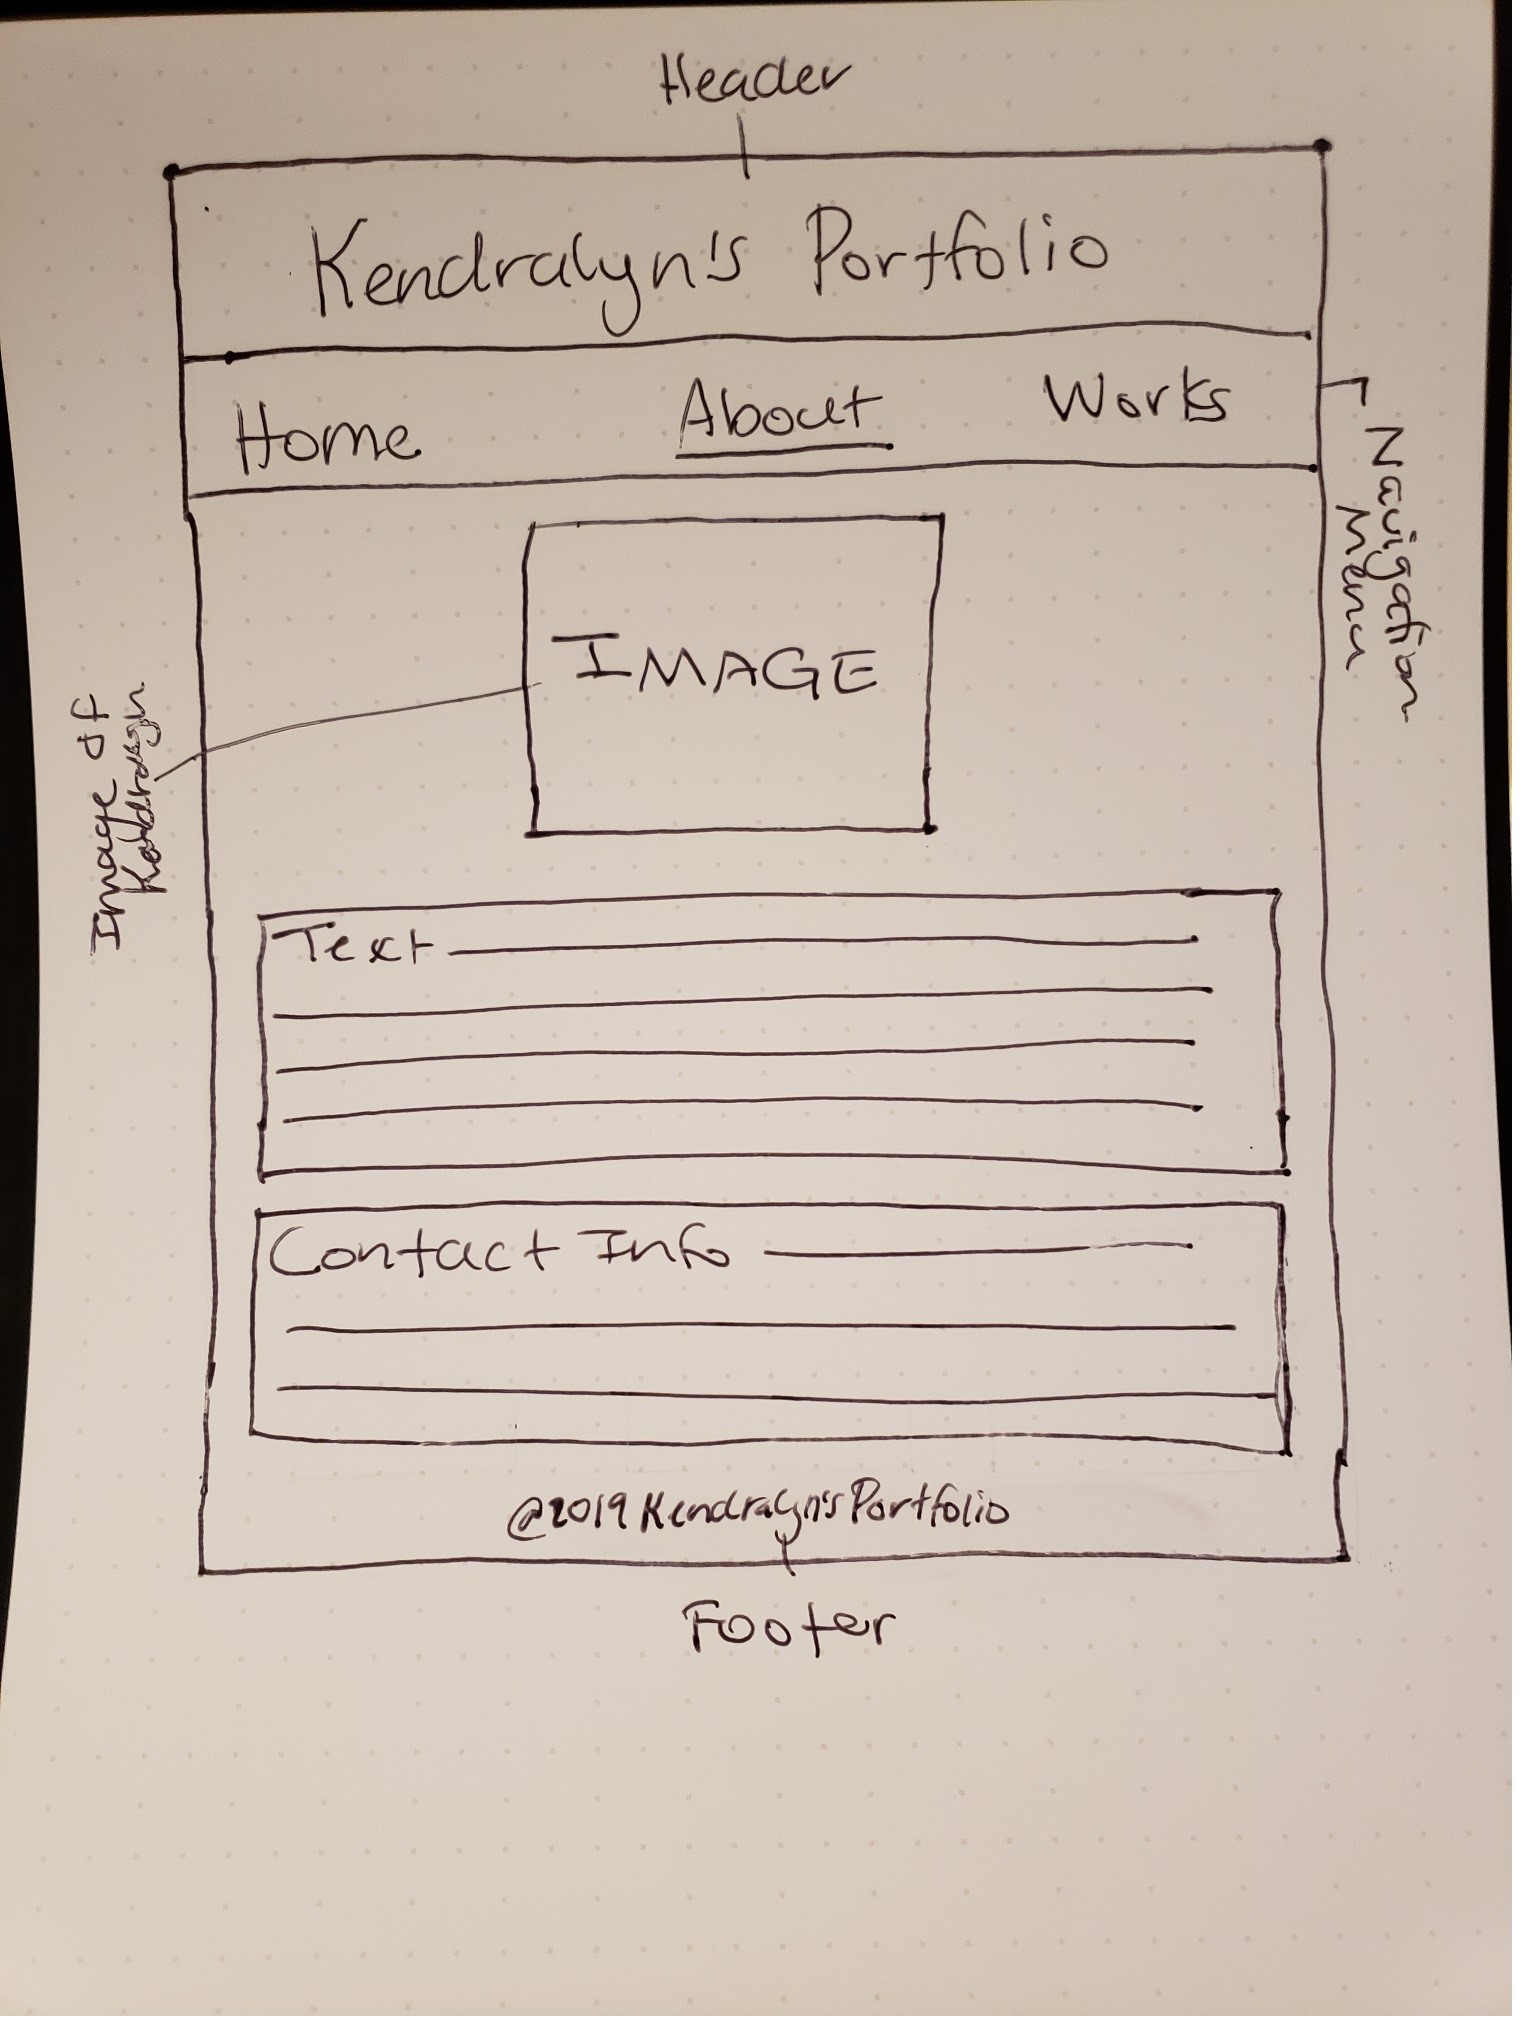 Header
Kendralyn's Portfolio
Home About Works
Navigation
Menu
IMAGE
Image of
Text
Contact Info
@2019 Kendralyn's Portfolio
Footer